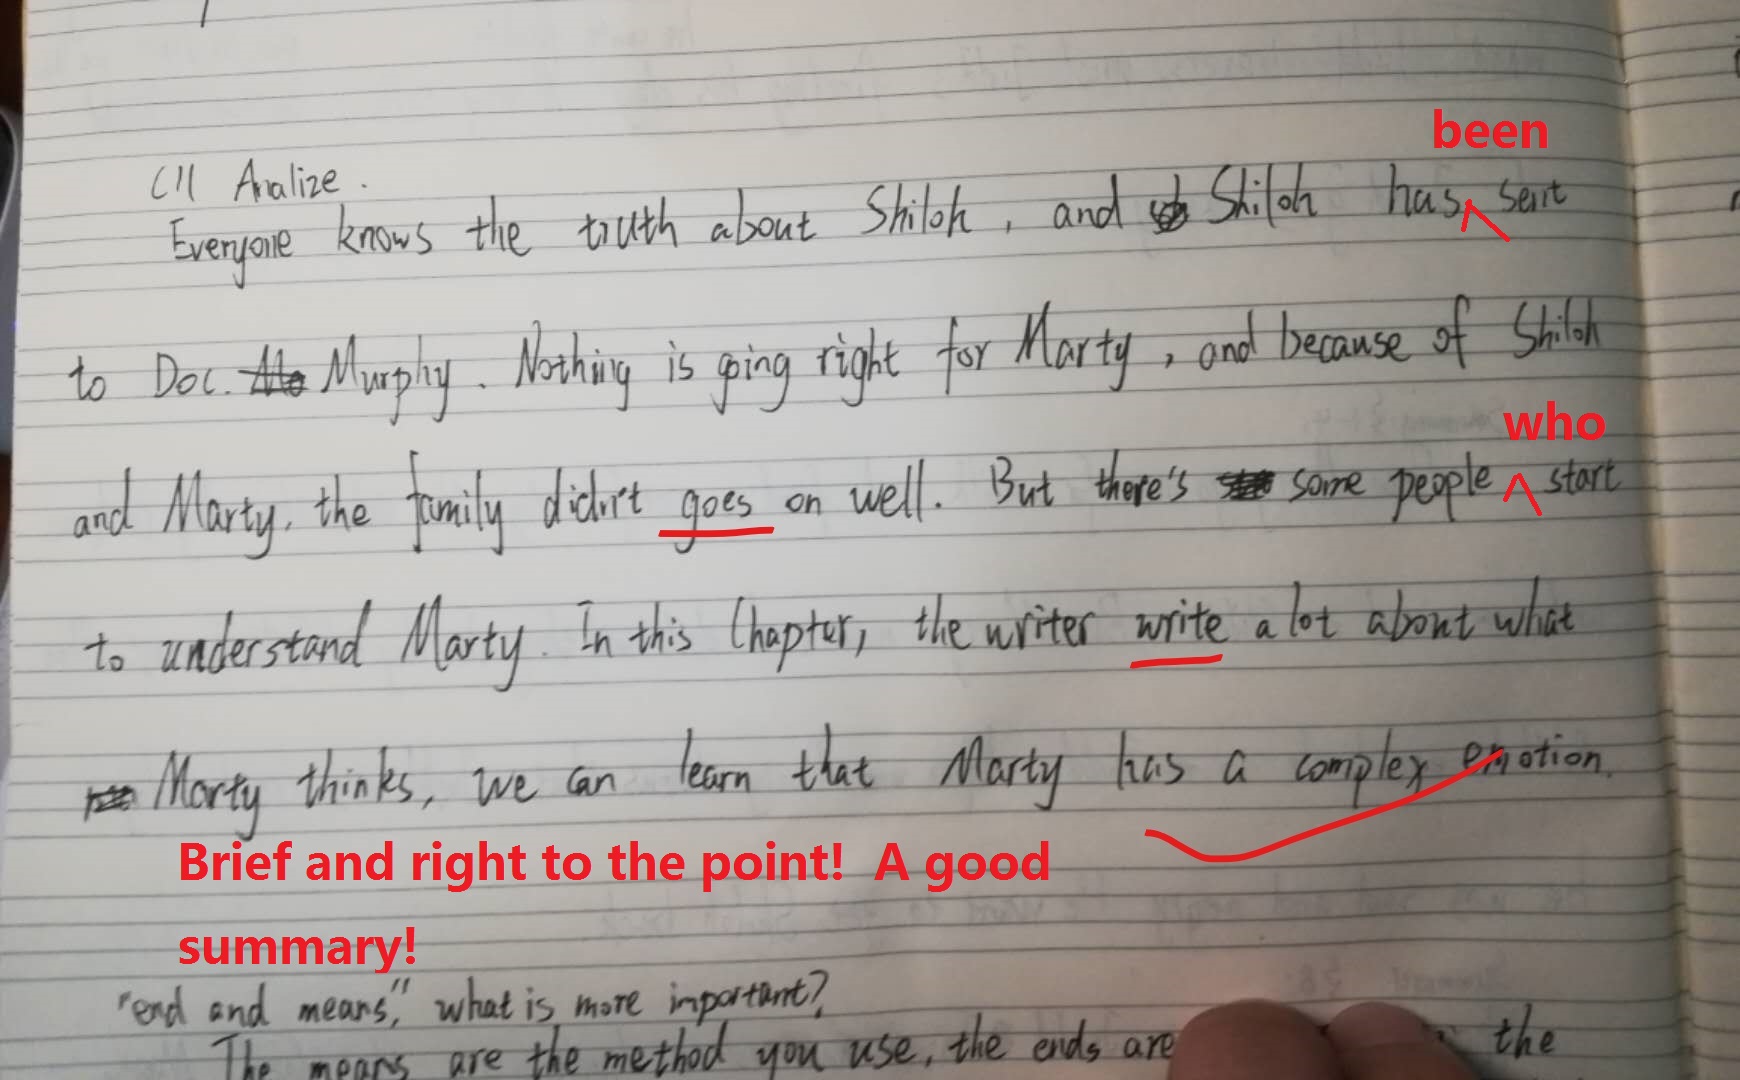 been
C11 Analize.
Everyone knows the truth about Shiloh, and Shiloh has sent
to Doc. Murphy. Nothing is going right for Marty, and because of Shiloh
who
and Marty, the family didn't goes on well. But there's some people start
to understand Marty. In this Chapter, the writer write a lot about what
Marty thinks, we can learn that Marty has a complex emotion.
Brief and right to the point! A good
summary!
"end and means," what is more important?
The means are the method you use, the ends are the